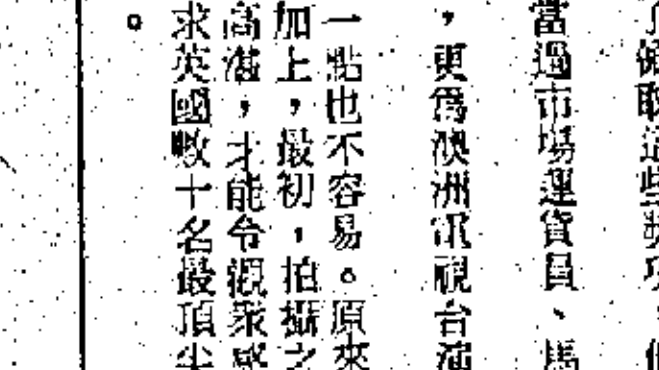 了領取這些獎項，
當過市場運貨員、馬
，更爲澳洲電視台演
一點也不容易。原來
加上，最初，拍攝之
高潮，才能令觀衆感
求英國數十名最頂尖
。